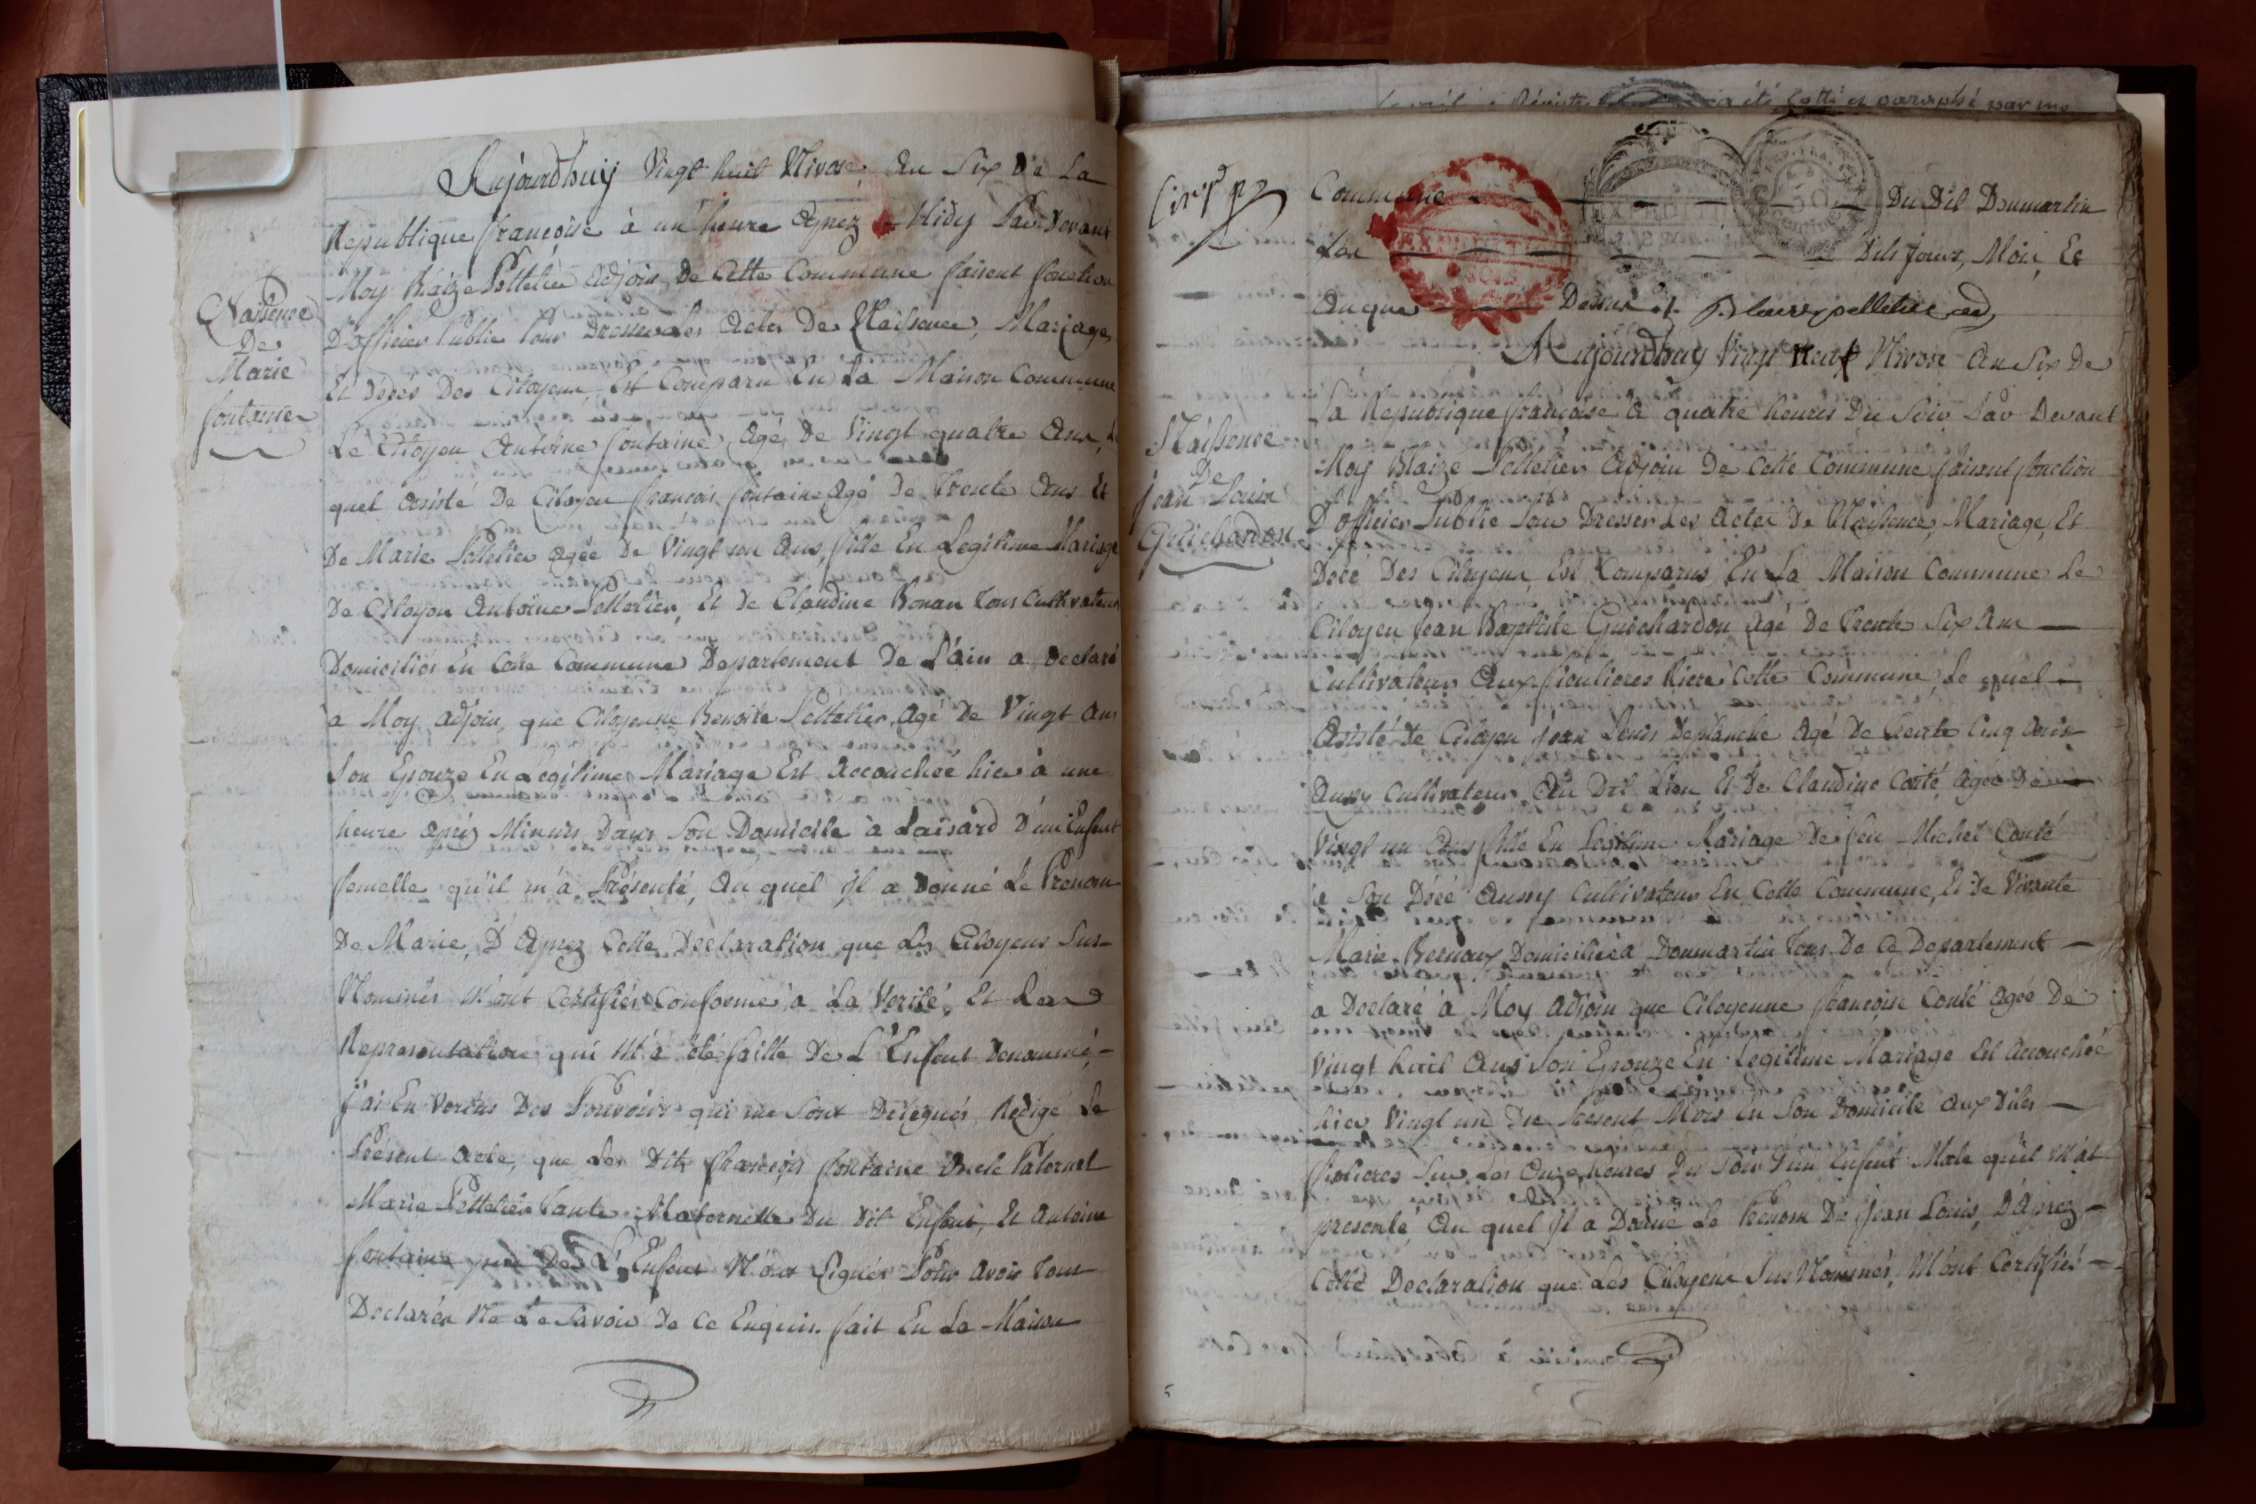 Aujourdhuy Vingt huit Nivose an Six De La
Republique françoise à un heure aprez Midy Par Devant
Moy Blaize Pelletier adjoin De Cette Commune faisent fonction
D'officier Public Pour Dresser les actes De Naissence, Mariages
Et Déces Des Citoyens, Est Comparu En La Maison Commune
Le Citoyen Antoine fontaine, agé De Vingt quatre Ans, Le
quel assisté De Citoyen françois fontaine agé De trente Ans Et
De Marie Pelletier agée De Vingt un Ans, fille En Legitime Mariage
De Citoyen Antoine Pelletier, Et De Claudine Bonan tous Cultivateurs
Domiciliés En Cette Commune Departement De L'ain a Declaré
à Moy adjoin, que Citoyenne Benoite Pelletier, agé De Vingt Ans
Son Epouze En Legitime Mariage Est accouchée hier à une
heure aprèz Minuis Dans Son Domicile à Laisard D'un Enfent
femelle qu'il m'a Présenté, au quel Jl a Donné Le Prenom
De Marie, D'aprez Cette Declaration que Les Citoyens Sus-
Nommés M'ont Certifiés Conforme à La Verité, Et La
Representation qui M'a été faitte De L'Enfent Denommé,-
J'ai En Vertus Des Pouvoirs qui me Sont Délegués, Redigé Le
Présent acte, que Les Dits françois fontaine Oncle Paternel
Marie Pelletier tante Maternelle Du Dit Enfent, Et Antoine
fontaine pere De L'Enfent N'ont Signés Pour avoir tous
Declarés Ne Le Savoir De Ce Enquis. fait En La Maison
Naissence
De
Marie
fontaine
été Cotté et paraphé par
Commune Du Dit Doumartin
Les Dits Jours, Mois, Et
an que Dessus ./. Blaize pelletier adj
EXPEDITION
Aujourdhuy Vingt Neuf Nivose an Six De
La Republique françoise à quatre heures Du Soir Par Devant
Moy Blaize Pelletier adjoin De Cette Commune faisent fonction
D'officier Public Pour Dresser Les actes De Naissence, Mariage, Et
Décé Des Citoyens, Est Comparus En La Maison Commune Le
Citoyen Jean Baptiste Guichardon agé De Trente Six Ans —
Cultivateur Aux Riere Cette Commune, Le quel —
assisté De Citoyen Jean Louis Deplanche agé De trente Cinq Anis
Aussy Cultivateur Au Dit Lieu Et De Claudine Conté agée De —
Vingt un Ans fille En Legitime Mariage De feu Michel Conté
à Son Décé Aussy Cultivateur En Cette Commune, Et De Vivante
Marie Domiciliée à Doumartin tous De Ce Departement —
a Declaré à Moy adjoin que Citoyenne françoise Conté agée De
Vingt huit Ans Son Epouze En Legitime Mariage Est accouchée
hier Vingt un Du Present Mois En Son Domicile aux Dites —
Sur Les Onze heures Du Soir D'un Enfent Male qu'il M'at
presenté au quel Jl a Donné Le Prenom De Jean Louis, D'aprez —
Cette Declaration que Les Citoyens Sus Nommés, M'ont Certifiés —
Naissence
De
Jean Louis
Guichardon